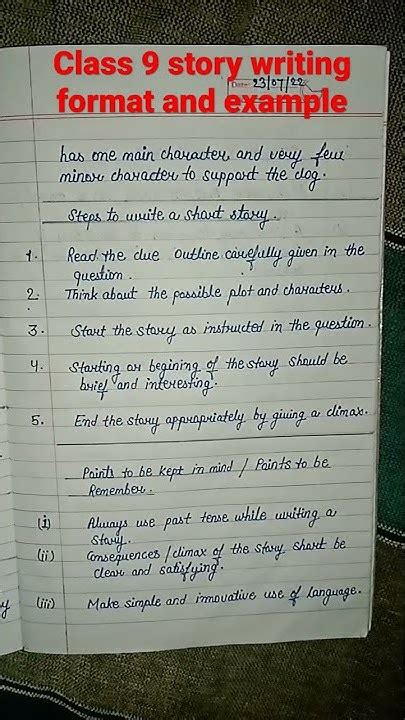 Class 9 story writing
format and example
Date 23/07/22
has one main character and very few
minor character to support the dog.
Steps to write a short story.
1. Read the clue outline carefully given in the
question.
2. Think about the possible plot and characters.
3. Start the story as instructed in the question.
4. Starting or begining of the story should be
brief and interesting.
5. End the story appropriately by giving a climax.
Points to be kept in mind / Points to be
Remember.
(i) Always use past tense while writing a
story.
(ii) Consequences / climax of the story short be
clear and satisfying.
(iii) Make simple and innovative use of language.